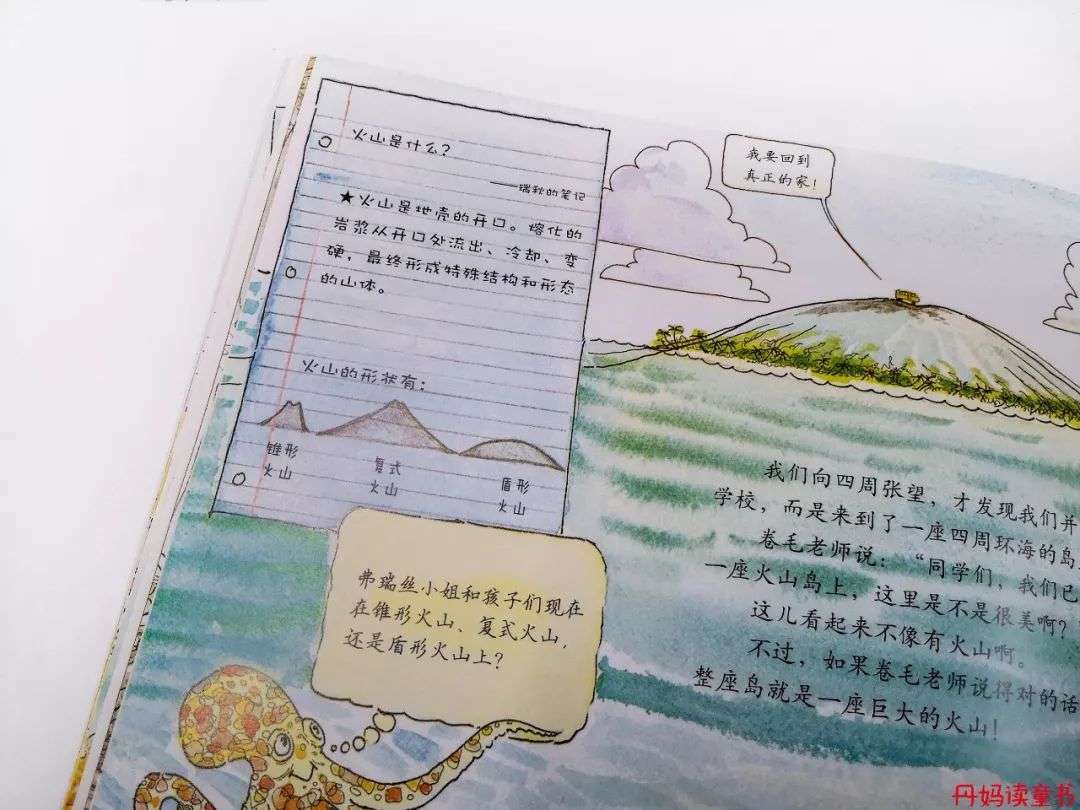 火山是什么?
——瑞秋的笔记
★火山是地壳的开口。熔化的
岩浆从开口处流出、冷却、变
硬,最终形成特殊结构和形态
的山体。
火山的形状有:
锥形
火山
复式
火山
盾形
火山
我要回到
真正的家!
弗瑞丝小姐和孩子们现在
在锥形火山、复式火山,
还是盾形火山上?
我们向四周张望,才发现我们并
学校,而是来到了一座四周环海的岛
卷毛老师说:“同学们,我们已
一座火山岛上,这里是不是很美啊?
这儿看起来不像有火山啊。
不过,如果卷毛老师说得对的话
整座岛就是一座巨大的火山!
丹妈读童书